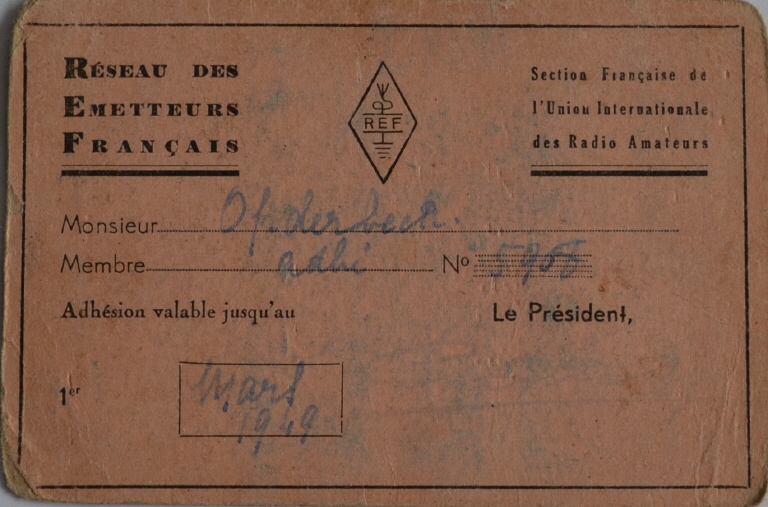 RÉSEAU DES
EMETTEURS
FRANÇAIS
REF
Section Française de
l'Union Internationale
des Radio Amateurs
Monsieur Opderbeck.
Membre adhi Nº
Adhésion valable jusqu'au
Le Président,
1er Mars
1949